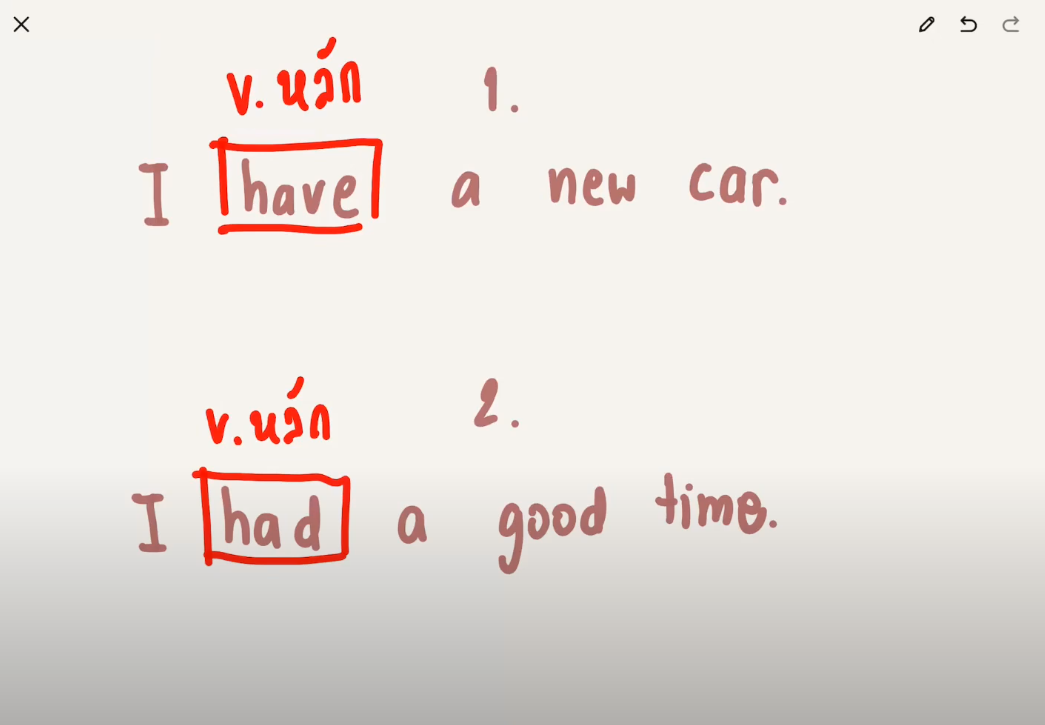 v.หลัก 1.
I have a new car.
v.หลัก 2.
I had a good time.